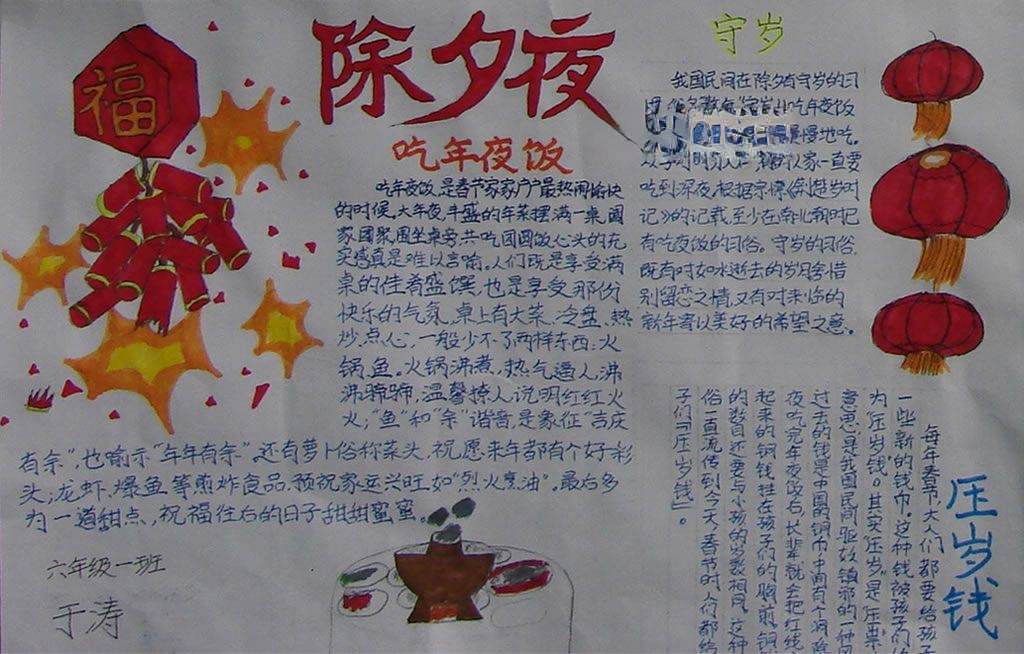 福
除夕夜
吃年夜饭
吃年夜饭,是春节家家户户最热闹愉快
的时候。大年夜,丰盛的年菜摆满一桌,阖
家团聚,围坐桌旁,共吃团圆饭,心头的充
实感真是难以言喻。人们既是享受满
桌的佳肴盛馔,也是享受那份
快乐的气氛,桌上有大菜、冷盘、热
炒、点心,一般少不了两样东西:火
锅、鱼。火锅沸煮,热气逼人,沸
沸腾腾,温馨撩人,说明红红火
火;“鱼”和“余”谐音,是象征“吉庆
有余”,也喻示“年年有余”。还有萝卜俗称菜头,祝愿来年都有个好彩
头;龙虾、爆鱼等煎炸食品,预祝家运兴旺如“烈火烹油”。最后多
为一道甜点,祝福往后的日子甜甜蜜蜜。
六年级一班
于涛
守岁
我国民间在除夕有守岁的习
吃年夜饭
慢慢地吃。
家一直要
吃到深夜。根据宗懔《荆楚岁时
记》的记载,至少在南北朝时已
有吃夜饭的习俗。守岁的习俗,
既有对如水逝去的岁月含惜
别留恋之情,又有对来临的
新年寄以美好的希望之意。
压岁钱
每年春节,大人们都要给孩子
一些新的钱币。这种钱被孩子们
为“压岁钱”。其实,“压岁”是“压祟”
意思,是我国民间驱妖镇邪的一种
过去的钱是中国圆铜币,中间有个洞,除
夜吃完年夜饭后,长辈就去把红线
起来的铜钱挂在孩子们的胸前,铜
的数目还要与小孩的岁数相同。这种
俗一直流传到今天,春节时人们都给
子们「压岁钱」。